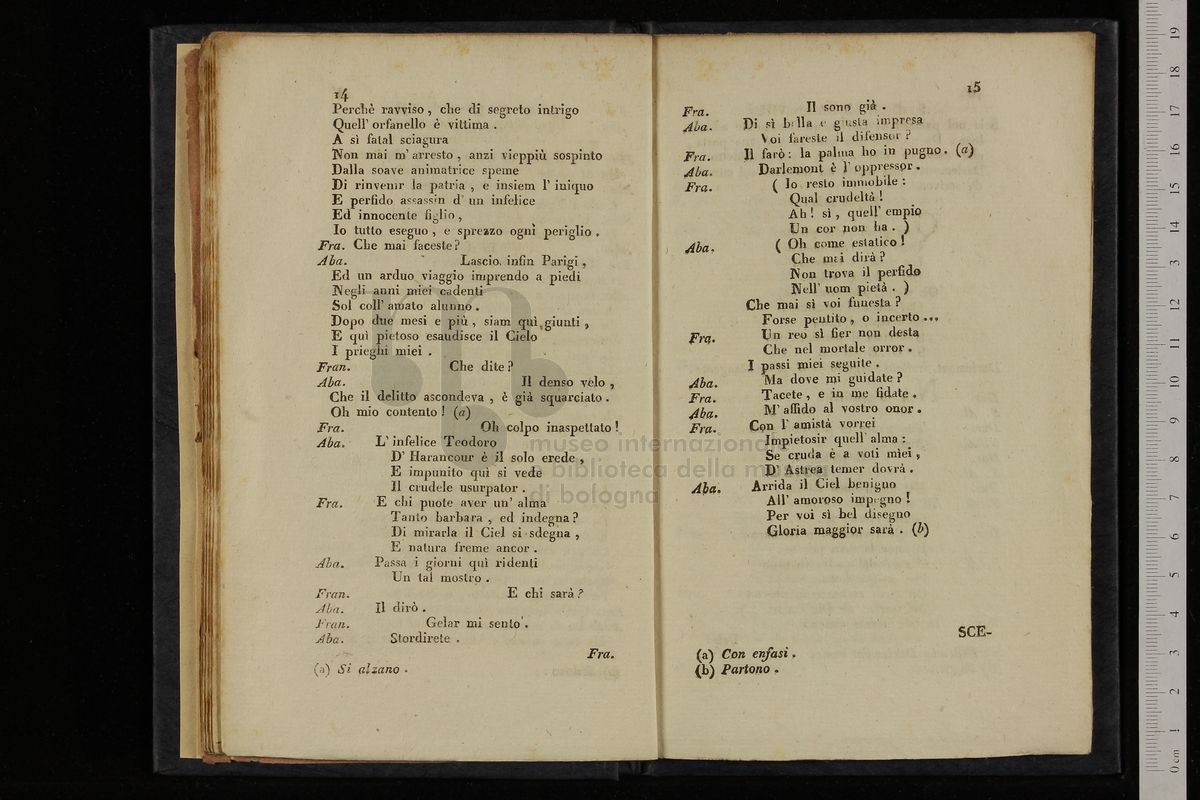 14
Perchè ravviso , che di segreto intrigo
Quell' orfanello è vittima .
A sì fatal sciagura
Non mai m' arresto , anzi vieppiù sospinto
Dalla soave animatrice speme
Di rinvenir la patria , e insiem l' iniquo
E perfido assassin d' un infelice
Ed innocente figlio ,
Io tutto eseguo , e sprezzo ogni periglio .
Fra. Che mai faceste ?
Aba. Lascio infin Parigi ,
Ed un arduo viaggio imprendo a piedi
Negli anni miei cadenti
Sol coll' amato alunno .
Dopo due mesi e più , siam quì giunti ,
E quì pietoso esaudisce il Cielo
I prieghi miei .
Fran. Che dite ?
Aba. Il denso velo ,
Che il delitto ascondeva , è già squarciato .
Oh mio contento ! (a)
Fra. Oh colpo inaspettato !
Aba. L' infelice Teodoro
D' Harancour è il solo erede ,
E impunito quì si vede
Il crudele usurpator .
Fra. E chi puote aver un' alma
Tanto barbara , ed indegna ?
Di mirarla il Ciel si sdegna ,
E natura freme ancor .
Aba. Passa i giorni quì ridenti
Un tal mostro .
Fran. E chi sarà ?
Aba. Il dirò .
Fran. Gelar mi sento .
Aba. Stordirete .
Fra.
(a) Si alzano .
15
Fra. Il sono già .
Aba. Di sì bella e giusta impresa
Voi fareste il difensor ?
Fra. Il farò : la palma ho in pugno . (a)
Aba. Darlemont è l' oppressor .
Fra. ( Io resto immobile :
Qual crudeltà !
Ah ! sì , quell' empio
Un cor non ha . )
Aba. ( Oh come estatico !
Che mai dirà ?
Non trova il perfido
Nell' uom pietà . )
Che mai sì voi funesta ?
Forse pentito , o incerto ...
Fra. Un reo sì fier non desta
Che nel mortale orror .
I passi miei seguite .
Aba. Ma dove mi guidate ?
Fra. Tacete , e in me fidate .
Aba. M' affido al vostro onor .
Fra. Con l' amistà vorrei
Impietosir quell' alma :
Se cruda è a voti miei ,
D' Astrea temer dovrà .
Aba. Arrida il Ciel benigno
All' amoroso impegno !
Per voi sì bel disegno
Gloria maggior sarà . (b)
SCE-
(a) Con enfasi .
(b) Partono .
museo internazionale
e biblioteca della musica
di bologna
0 cm 1 2 3 4 5 6 7 8 9 10 11 12 13 14 15 16 17 18 19